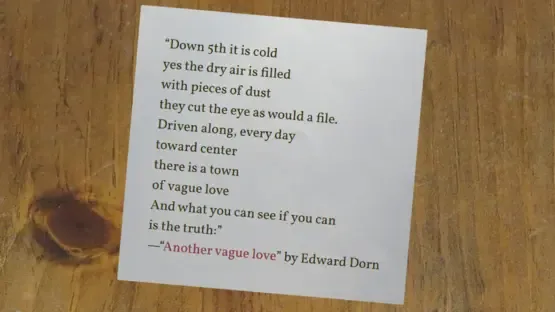 “Down 5th it is cold
yes the dry air is filled
with pieces of dust
they cut the eye as would a file.
Driven along, every day
toward center
there is a town
of vague love
And what you can see if you can
is the truth:”
—“Another vague love” by Edward Dorn